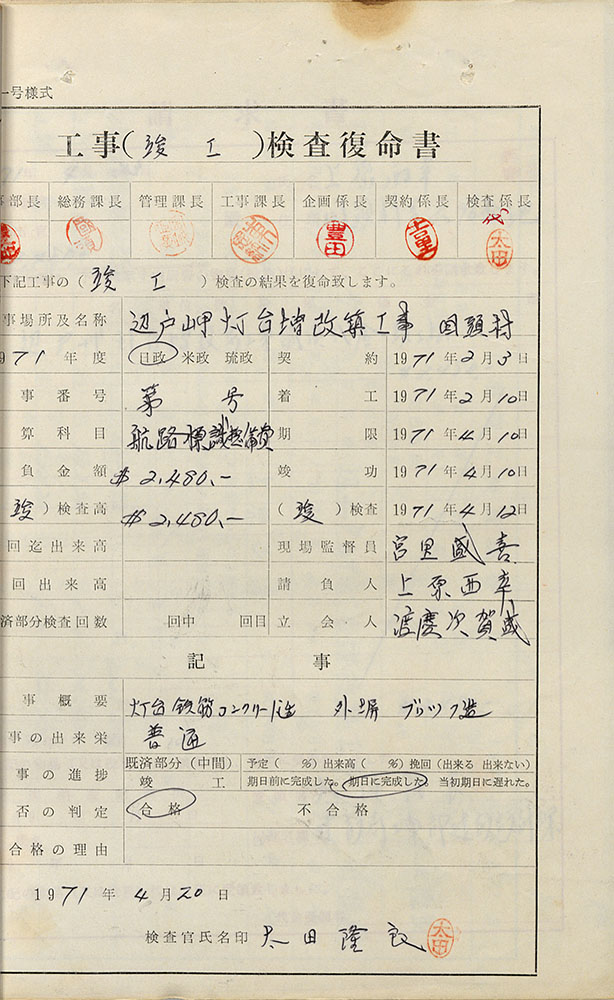 一号様式
工事(竣工)検査復命書
事部長 総務課長 管理課長 工事課長 企画係長 契約係長 検査係長
豊田 太田
下記工事の(竣工)検査の結果を復命致します。
事場所及名称 辺戸岬灯台増改築工事 国頭村
971年度 日政 米政 琉政 契約 1971年2月3日
事番号 第 号 着工 1971年2月10日
算科目 航路標識整備費 期限 1971年4月10日
負金額 $2,480.- 竣功 1971年4月10日
竣)検査高 $2,480.- (竣)検査 1971年4月12日
回迄出来高 現場監督員 宮里盛喜
回出来高 請負人 上原西幸
済部分検査回数 回中 回目 立会人 渡慶次賀盛
記事
事概要 灯台鉄筋コンクリート造 外塀 ブロック造
事の出来栄 普通
事の進捗 既済部分(中間) 予定( %)出来高( %)挽回(出来る 出来ない)
竣工 期日前に完成した。期日に完成した。当初期日に遅れた。
否の判定 合格 不合格
合格の理由
1971年4月20日
検査官氏名印 太田隆 太田